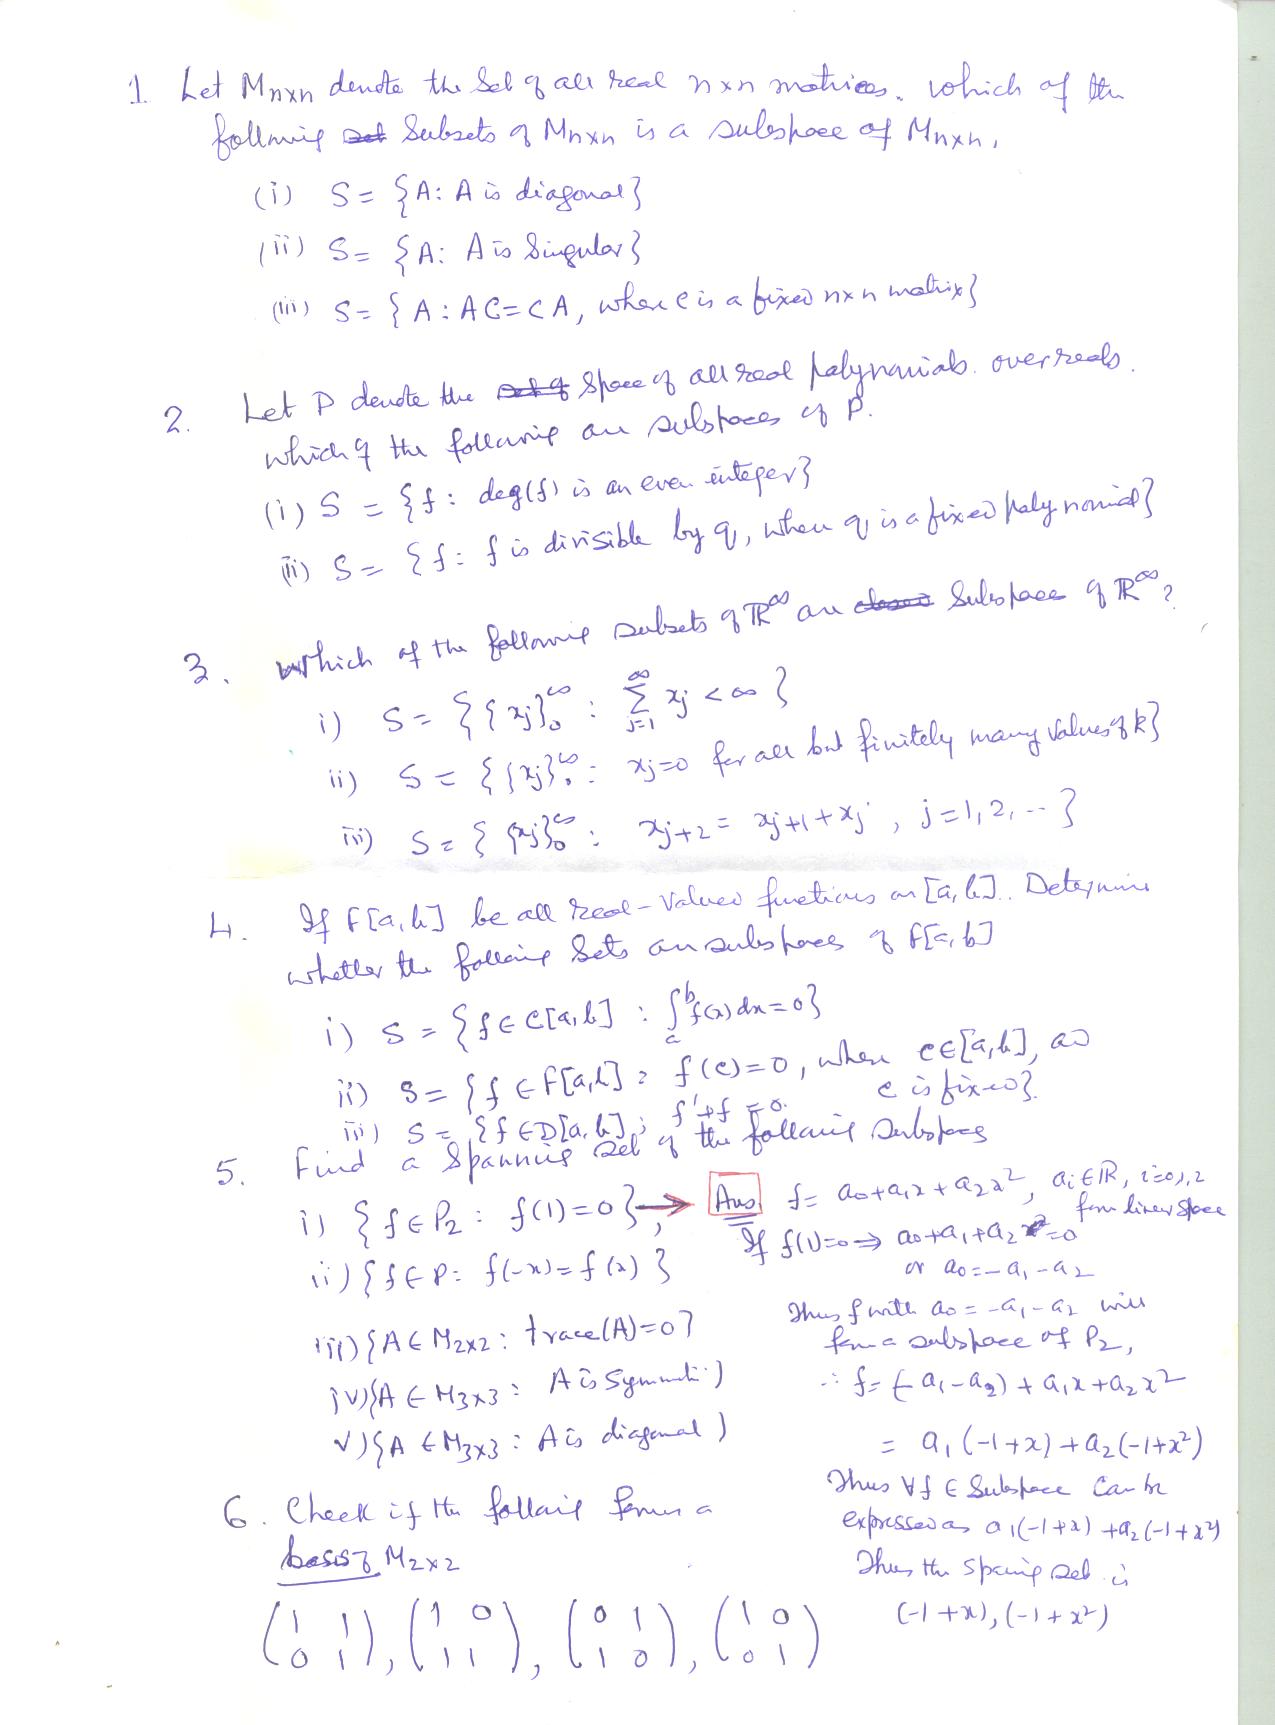 1. Let Mnxn denote the Set of all real nxn matrices. which of the
following set Subsets of Mnxn is a subspace of Mnxn,
(i) S = {A: A is diagonal}
(ii) S = {A: A is Singular}
(iii) S = {A : AC = CA, where C is a fixed nxn matrix}
2. Let P denote the set of Space of all real polynomials over reals.
which of the following are subspaces of P.
(i) S = {f : deg(f) is an even integer}
(ii) S = {f : f is divisible by q, when q is a fixed polynomial}
3. which of the following subsets of ℝ^∞ are closed Subspace of ℝ^∞?
i) S = {{xj}₀^∞ : ∑_{j=1}^∞ xj < ∞}
ii) S = {{xj}₀^∞ : xj=0 for all but finitely many values of k}
iii) S = {{xj}₀^∞ : xj+2 = xj+1 + xj, j=1,2, ...}
4. If F[a,b] be all real-valued functions on [a,b]. Determine
whether the following sets are subspaces of F[a,b]
i) S = {f ∈ C[a,b] : ∫_a^b f(x) dx = 0}
ii) S = {f ∈ F[a,b] : f(c)=0, when c∈[a,b], as
c is fixed}.
iii) S = {f ∈ D[a,b] ; f'+f = 0.
5. Find a Spanning set of the following Subspaces
i) {f ∈ P₂ : f(1)=0}, → Ans. f = a₀+a₁x+a₂x², ai∈ℝ, i=0,1,2
form linear space
If f(1)=0 ⇒ a₀+a₁+a₂ =0
or a₀=-a₁-a₂
ii) {f ∈ P: f(-x)=f(x)}
Thus f with a₀ = -a₁-a₂ will
form a subspace of P₂,
iii) {A ∈ M2x2 : trace(A)=0}
∴ f = (-a₁-a₂) + a₁x+a₂x²
iv) {A ∈ M3x3 : A is Symmetric}
v) {A ∈ M3x3 : A is diagonal}
= a₁(-1+x)+a₂(-1+x²)
Thus ∀f ∈ Subspace Can be
expressed as a₁(-1+x)+a₂(-1+x²)
Thus the spaning set is
(-1+x),(-1+x²)
6. Check if the following forms a
basis of M2x2
(1 1), (1 0), (0 1), (1 0)
(0 1), (1 1), (1 0), (0 1)